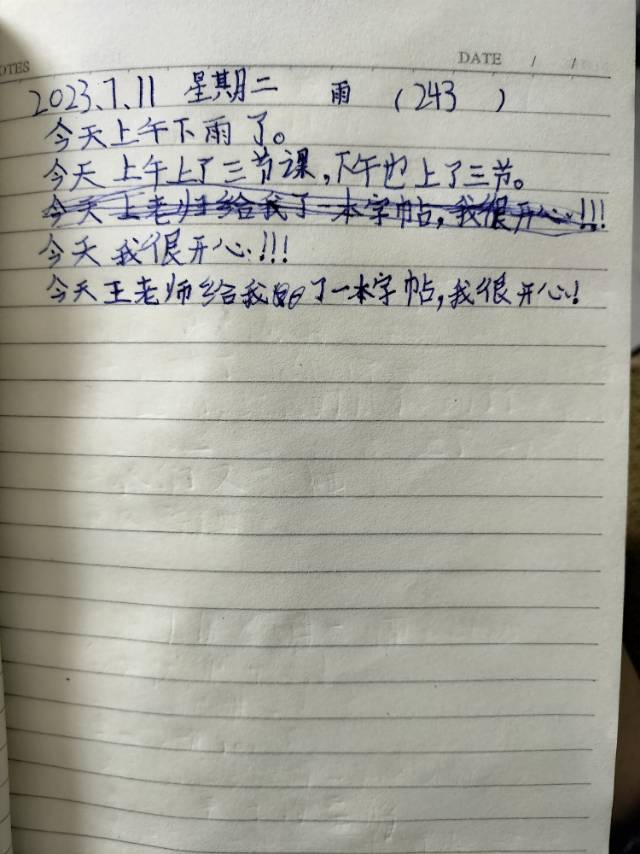 NOTES DATE / /
2023.7.11 星期二 雨 (243 )
今天上午下雨了。
今天上午上了三节课,下午也上了三节。
今天上老师给我了一本字帖,我很开心!!!
今天我很开心!!!
今天王老师给我了一本字帖,我很开心!